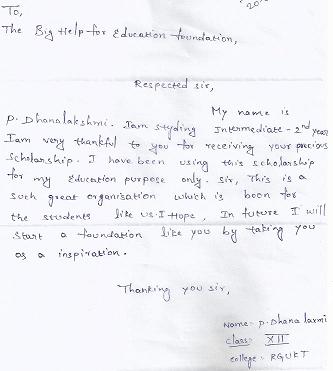 20
To,
The Big Help for Education foundation,
Respected sir,
My name is
P. Dhanalakshmi. Iam styding Intermediate - 2nd year
Iam very thankful to you for receiving your precious
scholarship. I have been using this scholarship
for my Education purpose only. sir, This is a
such great organisation which is been for
the students like us. I Hope, In future I will
start a foundation like you by taking you
as a inspiration.
Thanking you sir,
Name:- P. Dhana laxmi
class:- XII
college:- RGUKT